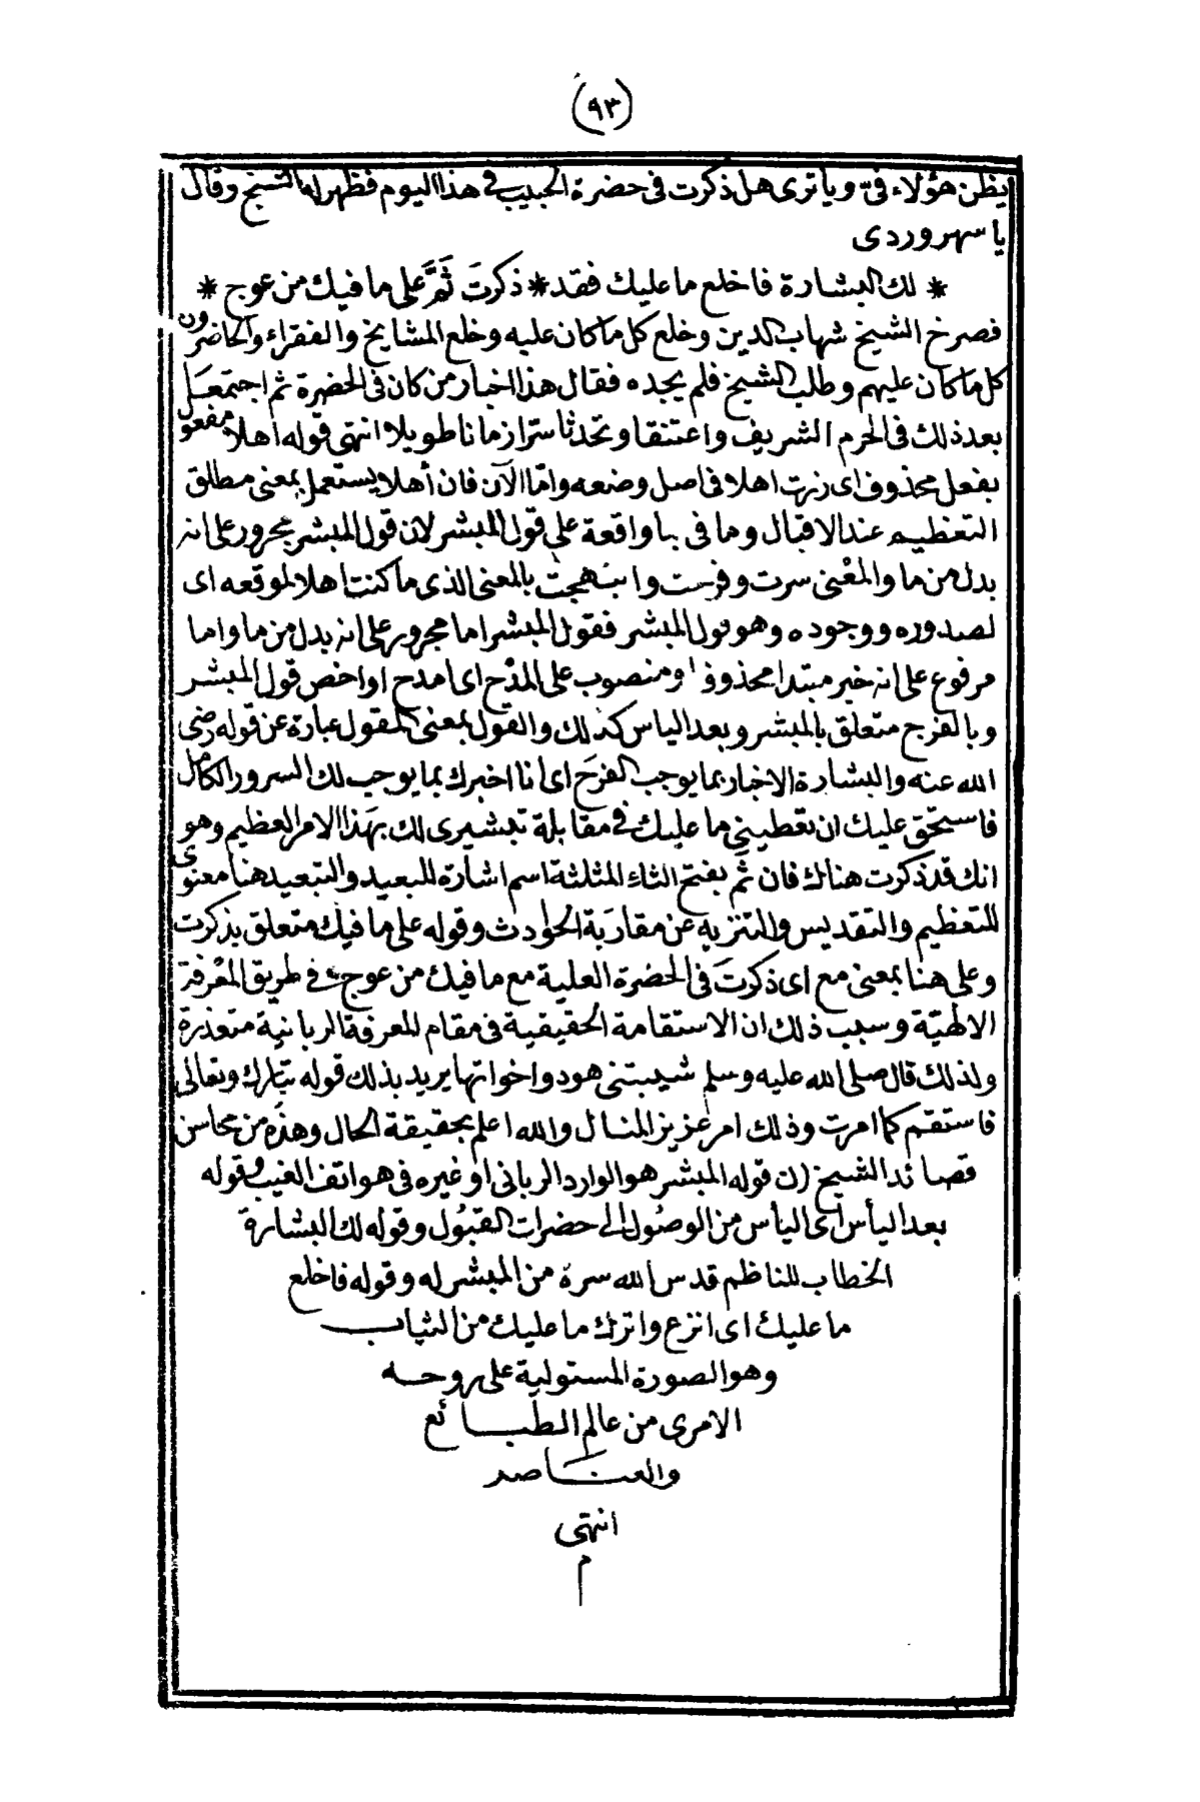 (٩٣)
يظن هؤلاء فىّ ويا ترى هل ذكرت فى حضرة الحبيب فى هذا اليوم فظهر له الشيخ وقال
يا سهروردى
* لك البشارة فاخلع ما عليك فقد * ذكرتَ ثَمَّ على ما فيك من عوج *
فصرخ الشيخ شهاب الدين وخلع كل ما كان عليه وخلع المشايخ والفقراء والحاضرون
كل ما كان عليهم وطلب الشيخ فلم يجده فقال هذا اخبار من كان فى الحضرة ثم اجتمعَـا
بعد ذلك فى الحرم الشريف واعتنقا وتحدثا سترا زمانا طويلا انتهى قوله اهلا مفعو
بفعل محذوف اى زرت اهلا فى اصل وضعه وامّا الآن فان أهلا يستعمل بمعنى مطلق
التعظيم عند الاقبال وما فى بما واقعة على قول المبشر لان قول المبشر مجرور على انه
بدل من ما والمعْنى سرت وفرست وابتهجت بالمعنى الذى ما كنت اهلا لموقعه اى
لصدوره ووجوده وهو قول المبشر فقول المبشر اما مجرور على انه بدل من ما واما
مرفوع على انه خبر مبتدا محذوف او منصوب على المدْح اى امدح او اخص قول المبشر
وبالفرج متعلق بالمبشر وبعد الياس كذلك والقول بمعنى المقول عبارة عن قوله رضى
الله عنه والبشارة الاخبار بما يوجب الفرَح اى انا اخبرك بما يوجب لك السرور الكامل
فاستحق عليك ان تعطينى ما عليك فى مقابلة تبشيرى لك بهَذا الامر العظيم وهو
انك قد ذكرت هناك فان ثَمَّ بفتح الثاء المثلثة اسم اشارة للبعيد والتبعيد هنا معنوى
للتعظيم والتقديس والتنزيه عن مقاربَة الحوادث وقوله على ما فيك متعلق بذكرت
وعلى هنا بمعنى مع اى ذكرتَ فى الحضرة العلية مع ما فيك من عوج فى طريق المعْرفة
الالهيّة وسبب ذلك ان الاستقامة الحقيقية فى مقام المعرفة الربانية متعذرة
ولذلك قال صلى الله عليه وسلم شيبتنى هود واخواتها يريد بذلك قوله تبَارك وتعالى
فاستقم كما امرت وذلك امر عزيز المنال والله اعلم بحقيقة الحال وهذه من محاسن
قصائد الشيخ (ن قوله المبشر هو الوارد الربانى او غيره فى هواتف الغيب وقوله
بعد اليأس اى اليأس من الوصُول الى حضرات القبُول وقوله لك البشارة
الخطاب للناظم قدس الله سرة من المبشر له وقوله فاخلع
ما عليك اى انزع واترك ما عليك من الثياب
وهو الصورة المستولية على روحه
الامرى من عالم الطبائع
والعناصر
انتهى
م